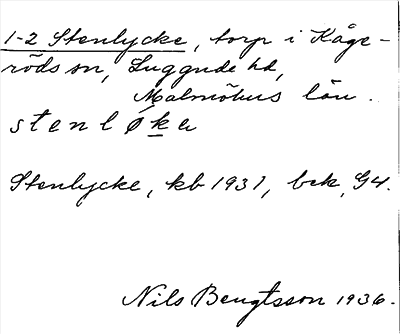 1-2 Stenlycke, torp i Kåge-
röds sn, Luggude hd,
Malmöhus län.
stenløkə
Stenlycke, kb 1931, bek, G4.
Nils Bengtsson 1936.